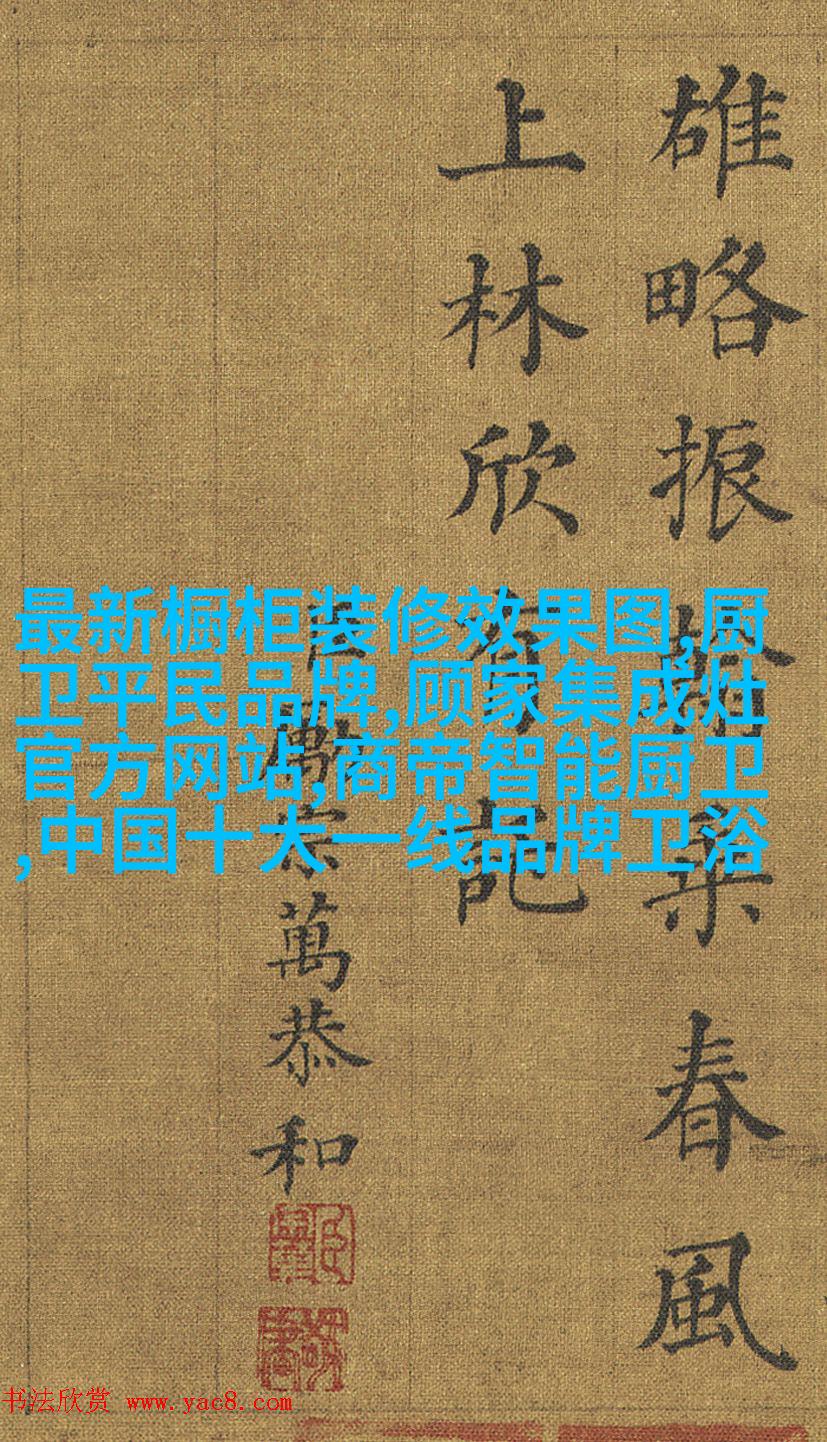 雄略振桑春風
上林欣有託
臣勵宗萬恭和
最新橱柜装修效果图,厨
卫平民品牌,顾家集成灶
官方网站,商帝智能厨卫
,中国十大一线品牌卫浴
书法欣赏 www.yac8.com